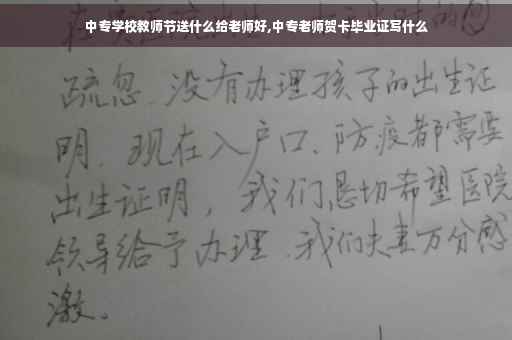 中专学校教师节送什么给老师好,中专老师贺卡毕业证写什么
疏忽、没有办理孩子的出生证
明、现在入户口、防疫都需要
出生证明，我们恳切希望医院
领导给予办理、我们夫妻万分感
激。